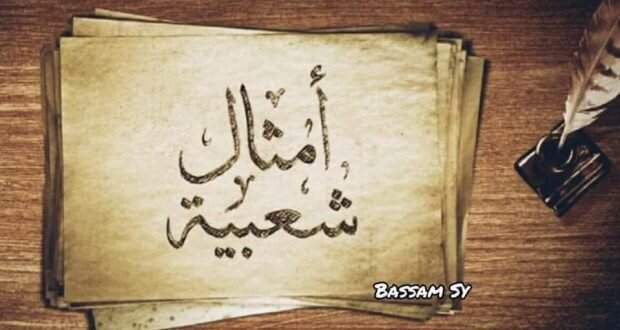 أمثال
شعبية
BASSAM SY